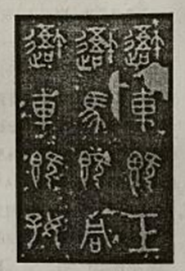 吾車既工
吾馬既同
吾車既好